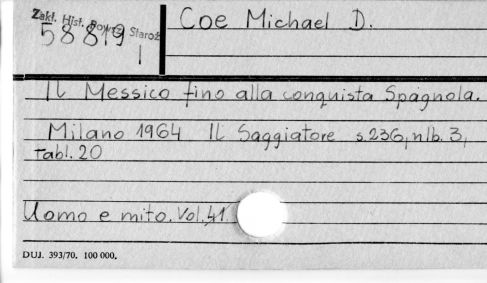 Zakł. Hist. Powsz. Staroż.
58819
1
Coe Michael D.
Il Messico fino alla conquista Spagnola.
Milano 1964 Il Saggiatore s. 236, nlb. 3,
tabl. 20
Uomo e mito. Vol. 41.
DUJ. 393/70. 100 000.